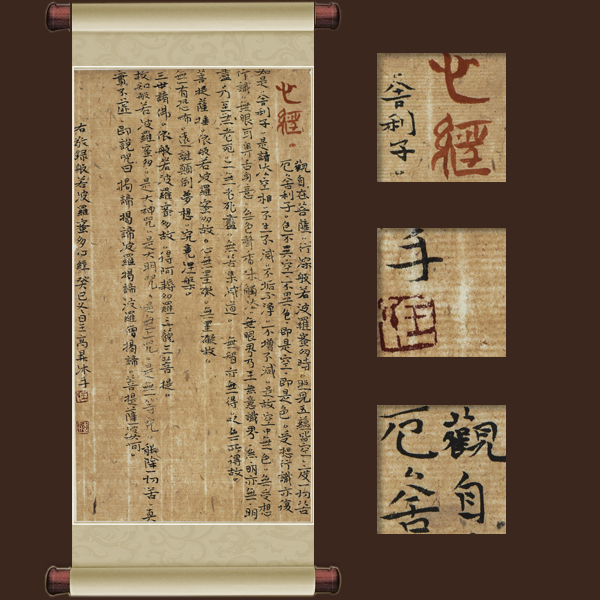 心經
觀自在菩薩。行深般若波羅蜜多時。照見五蘊皆空。度一切苦
厄。舍利子。色不異空。空不異色。色即是空。空即是色。受想行識。亦復
如是。舍利子。是諸法空相。不生不滅。不垢不淨。不增不減。是故空中無色。無受想
行識。無眼耳鼻舌身意。無色聲香味觸法。無眼界。乃至無意識界。無無明。亦無無明
盡。乃至無老死。亦無老死盡。無苦集滅道。無智亦無得。以無所得故。
菩提薩埵。依般若波羅蜜多故。心無罣礙。無罣礙故。
無有恐怖。遠離顛倒夢想。究竟涅槃。
三世諸佛。依般若波羅蜜多故。得阿耨多羅三藐三菩提。
故知般若波羅蜜多。是大神咒。是大明咒。是無上咒。是無等等咒。能除一切苦。真
實不虛。即說咒曰。揭諦揭諦。波羅揭諦。波羅僧揭諦。菩提薩婆訶。
右敬錄般若波羅蜜多心經 癸巳冬日王萬 沐手
心經
舍利子。
手
觀自
厄。舍